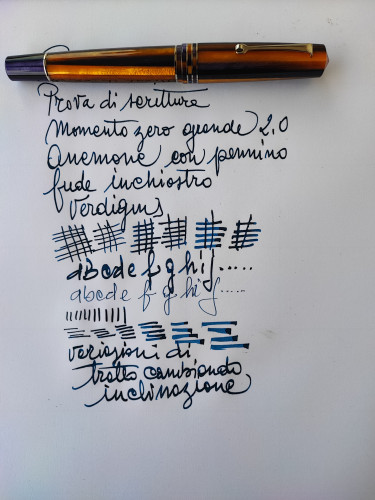 Prova di scrittura
Momento zero grande 2.0
Anemone con pennino
fude inchiostro
Verdigris
abcde f g h i j.....
abcde f g h i j.....
variazioni di
tratto cambiando
inclinazione